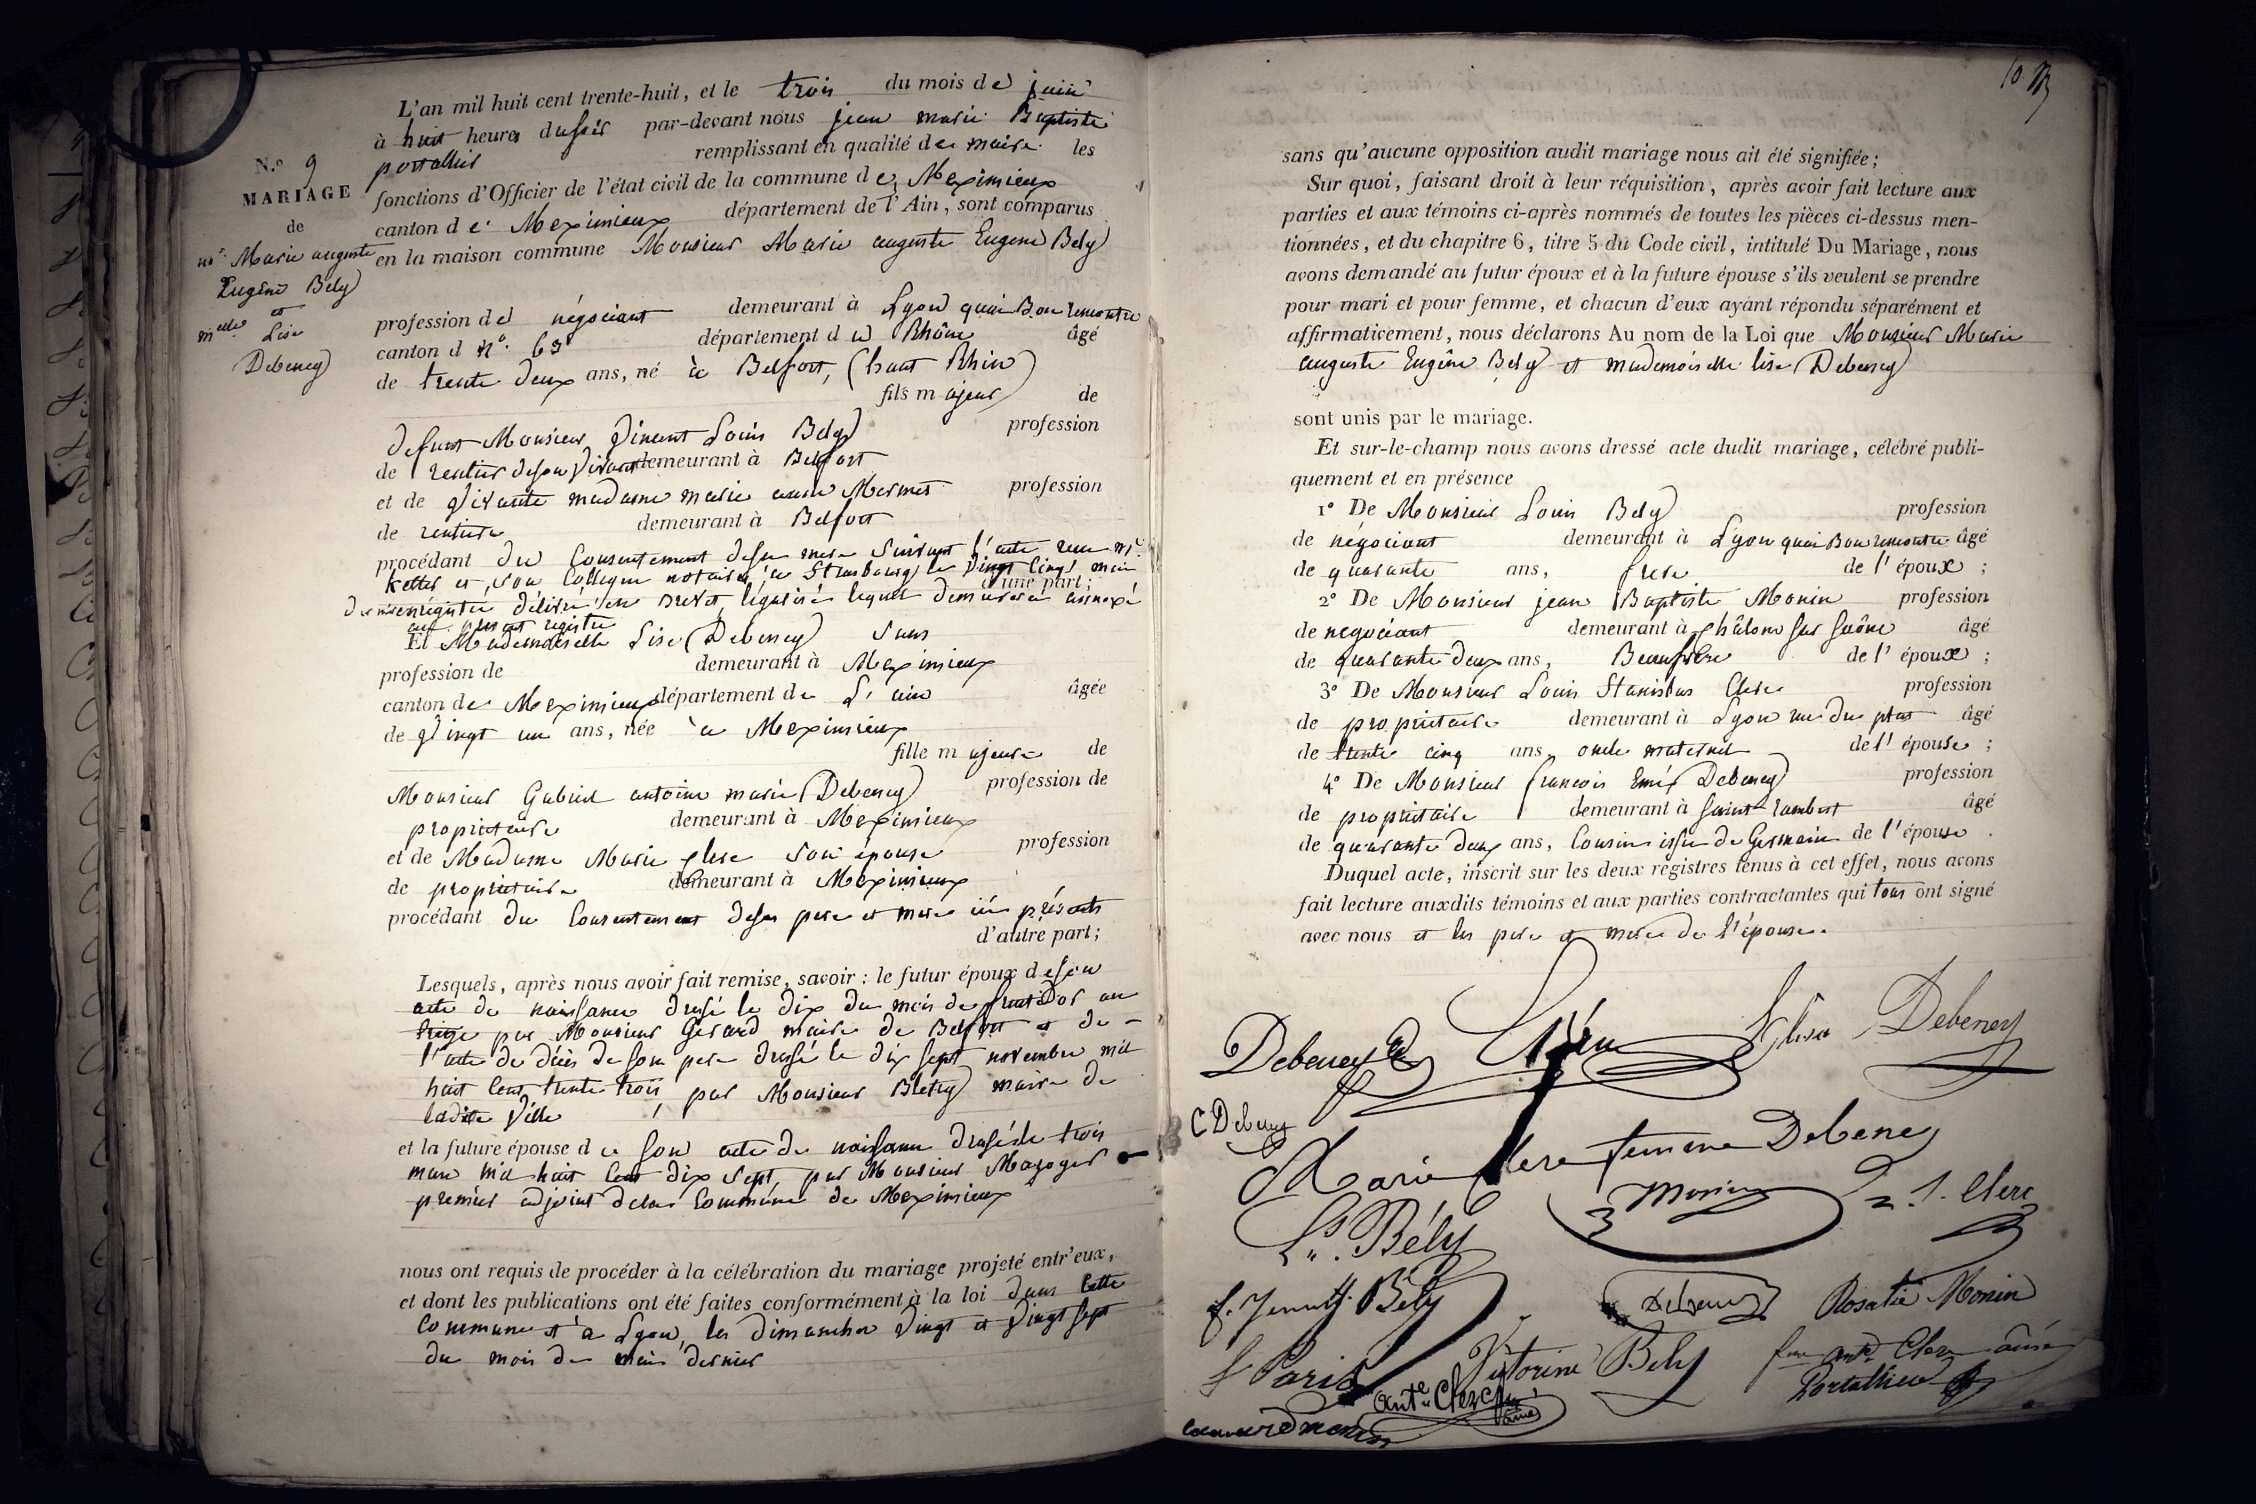 N.º 9
MARIAGE
de
mr Marie auguste
Eugène Bély
et
melle Lise
Debeney
L'an mil huit cent trente-huit, et le trois du mois de juin
à huit heures du soir par-devant nous jean marie Baptiste
portallier remplissant en qualité de maire les
fonctions d'Officier de l'état civil de la commune de Meximieux
canton de Meximieux département de l'Ain, sont comparus
en la maison commune Monsieur Marie auguste Eugène Bely
profession de négociant demeurant à Lyon quai Bon rencontre
canton d n° 63 département du Rhône âgé
de trente deux ans, né à Belfort, (haut Rhin)
fils majeur de
defunt Monsieur Vincent Louis Bely profession
de rentier de son vivant demeurant à Belfort
et de vivante madame marie anne Mermet profession
de rentiere demeurant à Belfort
procédant du consentement de sa mere suivant l'acte reçu Mr
Ketter et son collegue notaires à Strasbourg le vingt cinq mai
d'une part;
dernier enregistré délivré en Brevet, légalisé lequel demeurera annexé
au present registre
Et Mademoiselle Lise Debeney sans
profession de demeurant à Meximieux
canton de Meximieux département de L'ain âgée
de vingt un ans, née à Meximieux
fille majeure de
Monsieur Gabriel antoine marie Debeney profession de
proprietaire demeurant à Meximieux
et de Madame Marie Clerc son épouse profession
de proprietaire demeurant à Meximieux
procédant du consentement de ses pere et mere ici présents
d'autre part;
Lesquels, après nous avoir fait remise, savoir : le futur époux de son
acte de naissance dressé le dix du mois de fructidor an
treize par Monsieur Gerard maire de Belfort et de
l'acte de décès de son pere dressé le dix sept novembre mil
huit cent trente trois, par Monsieur Blétry maire de
ladite ville
et la future épouse de son acte de naissance dressé le trois
mars mil huit cent dix sept, par Monsieur
premier adjoint de la commune de Meximieux
nous ont requis de procéder à la célébration du mariage projeté entr'eux,
et dont les publications ont été faites conformément à la loi dans cette
commune et à Lyon, les dimanches vingt et vingt sept
du mois de mai dernier
10
sans qu'aucune opposition audit mariage nous ait été signifiée;
Sur quoi, faisant droit à leur réquisition, après avoir fait lecture aux
parties et aux témoins ci-après nommés de toutes les pièces ci-dessus men-
tionnées, et du chapitre 6, titre 5 du Code civil, intitulé Du Mariage, nous
avons demandé au futur époux et à la future épouse s'ils veulent se prendre
pour mari et pour femme, et chacun d'eux ayant répondu séparément et
affirmativement, nous déclarons Au nom de la Loi que Monsieur Marie
auguste Eugène Bely et mademoiselle lise Debeney
sont unis par le mariage.
Et sur-le-champ nous avons dressé acte dudit mariage, célébré publi-
quement et en présence
1º De Monsieur Louis Bely profession
de négociant demeurant à Lyon quai Bon rencontre âgé
de quarante ans, frere de l'époux ;
2º De Monsieur jean Baptiste Monin profession
de negociant demeurant à Châlons sur Saône âgé
de quarante deux ans, Beaufrère de l'époux ;
3º De Monsieur Louis Stanislas Clerc profession
de proprietaire demeurant à Lyon rue du plat âgé
de trente cinq ans, oncle maternel de l'épouse ;
4º De Monsieur francois Emé Debeney profession
de proprietaire demeurant à Saint-rambert âgé
de quarante deux ans, Cousin issu de Germain de l'épouse .
Duquel acte, inscrit sur les deux registres tenus à cet effet, nous avons
fait lecture auxdits témoins et aux parties contractantes qui tous ont signé
avec nous et les pere et mere de l'épouse.
Debeney
Elisa Debeney
C Debeney
Marie Clerc femme Debeney
Ls. Bély
Monin
L. S. Clerc
Bély
Debeney
Rosalie Monin
Paris
Victorine Bely
ante Clerc
Clerc ainé
Portallier